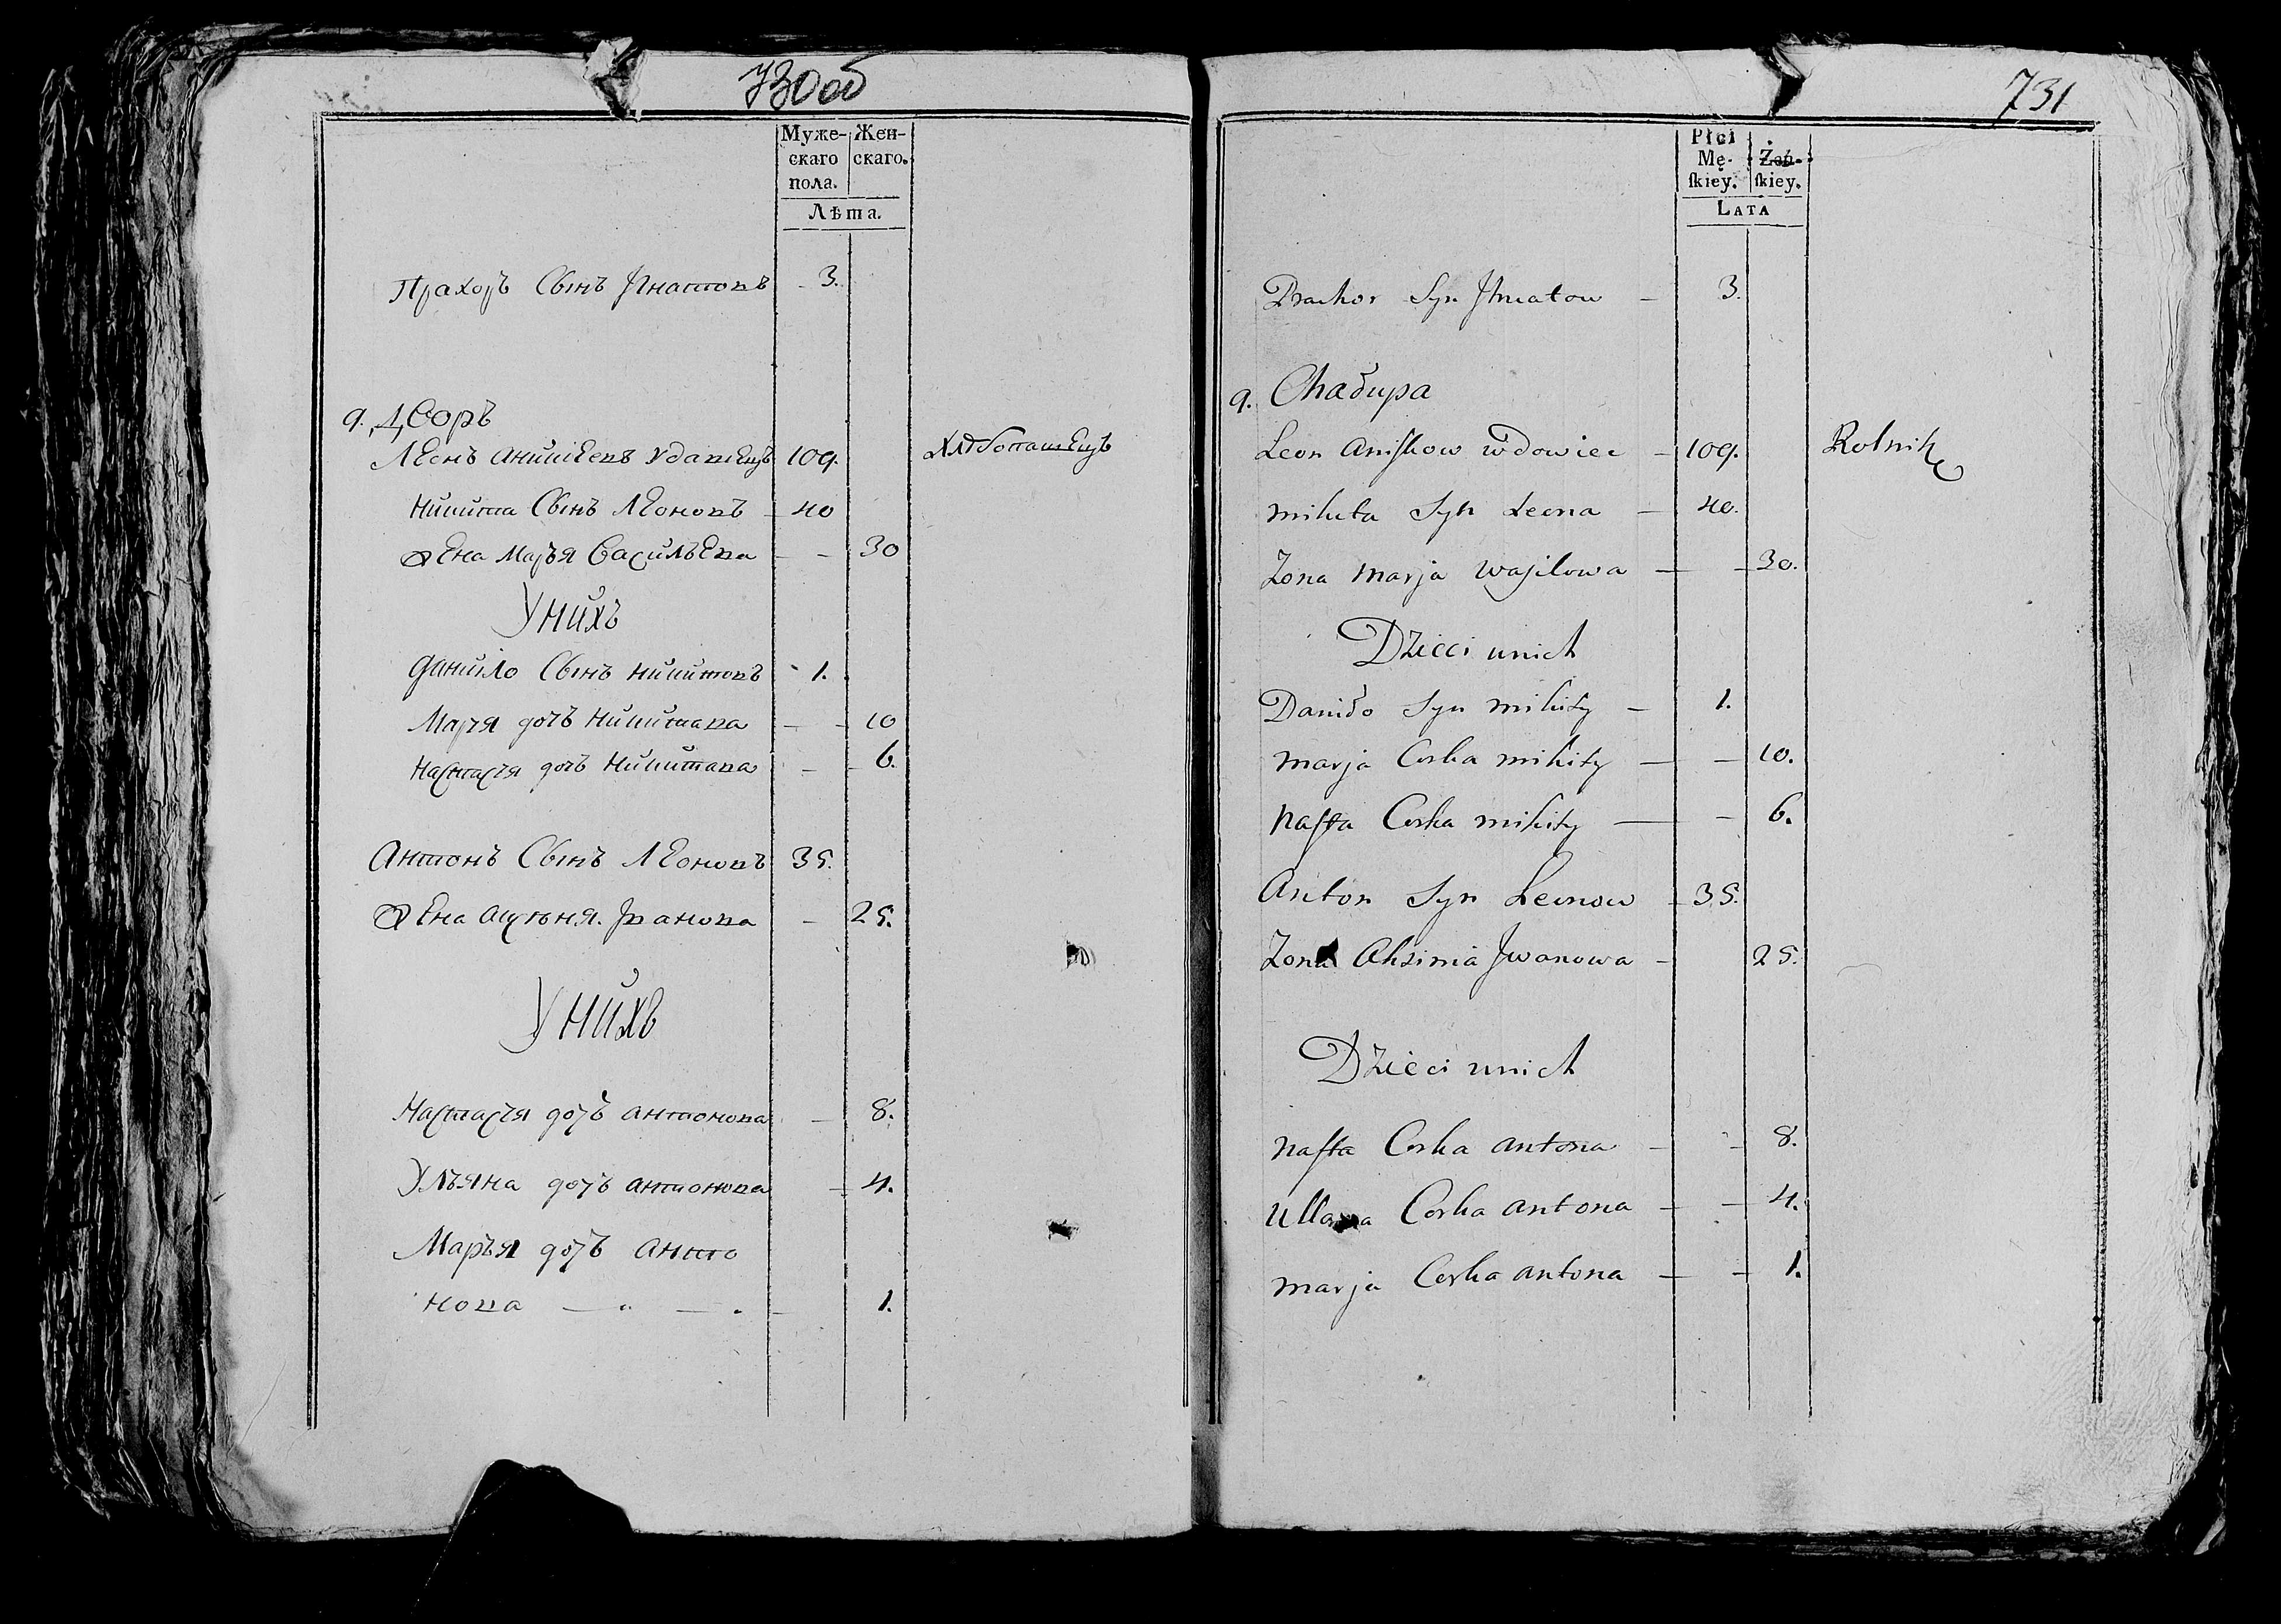 730об
Муже- Жен-
скаго скаго.
пола.
Лѣта.
Прахоръ Сынъ Игнатовъ 3.
9. Дворъ
Леонъ Анишкевъ Удавецъ 109. Хлѣбопашецъ
Никита Сынъ Леоновъ - 40
Жена Марья Васильева - - 30
У нихъ
Данило Сынъ Никитовъ - 1.
Марья дочь Никитава - - 10
Настасья дочь Никитава - - 6.
Антонъ Сынъ Леоновъ 35.
Жена Иванова - 25.
У нихъ
Настасья дочъ Антонова - 8.
Ульяна дочъ Антонова - 4.
Марья дочъ Анто
нова — " — . - 1.
731
Płci
Mę- Żeń-
ſkiey. ſkiey.
LATA
Prachor Syn Ihnatow - 3.
9. Chałupa
Leon Aniſkow wdowiec - 109. Rolnik
mikita Syn Leona - 40.
Zona marja Waſilowa - - 30.
Dzieci unich
Daniło Syn mikity - 1.
marja Corka mikity - - 10.
Naſta Corka mikity - - 6.
Anton Syn Leonow - 35.
Zona Aksinia Jwanowa - 25.
Dzieci unich
Naſta Corka antona - - 8.
Ullana Corka antona - - 4.
marja Corka antona - - 1.